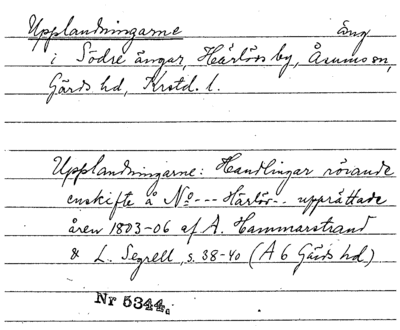 Upplandningarne äng
i Södre ängar, Härlövs by, Åsums sn,
Gärds hd, Krstd. l.
Upplandningarne: Handlingar rörande
enskifte å No --- Härlöv -- upprättade
åren 1803-06 af A. Hammarstrand
& L. Segrell, s. 38-40 (A 6 Gärds hd.)
Nr 5344a